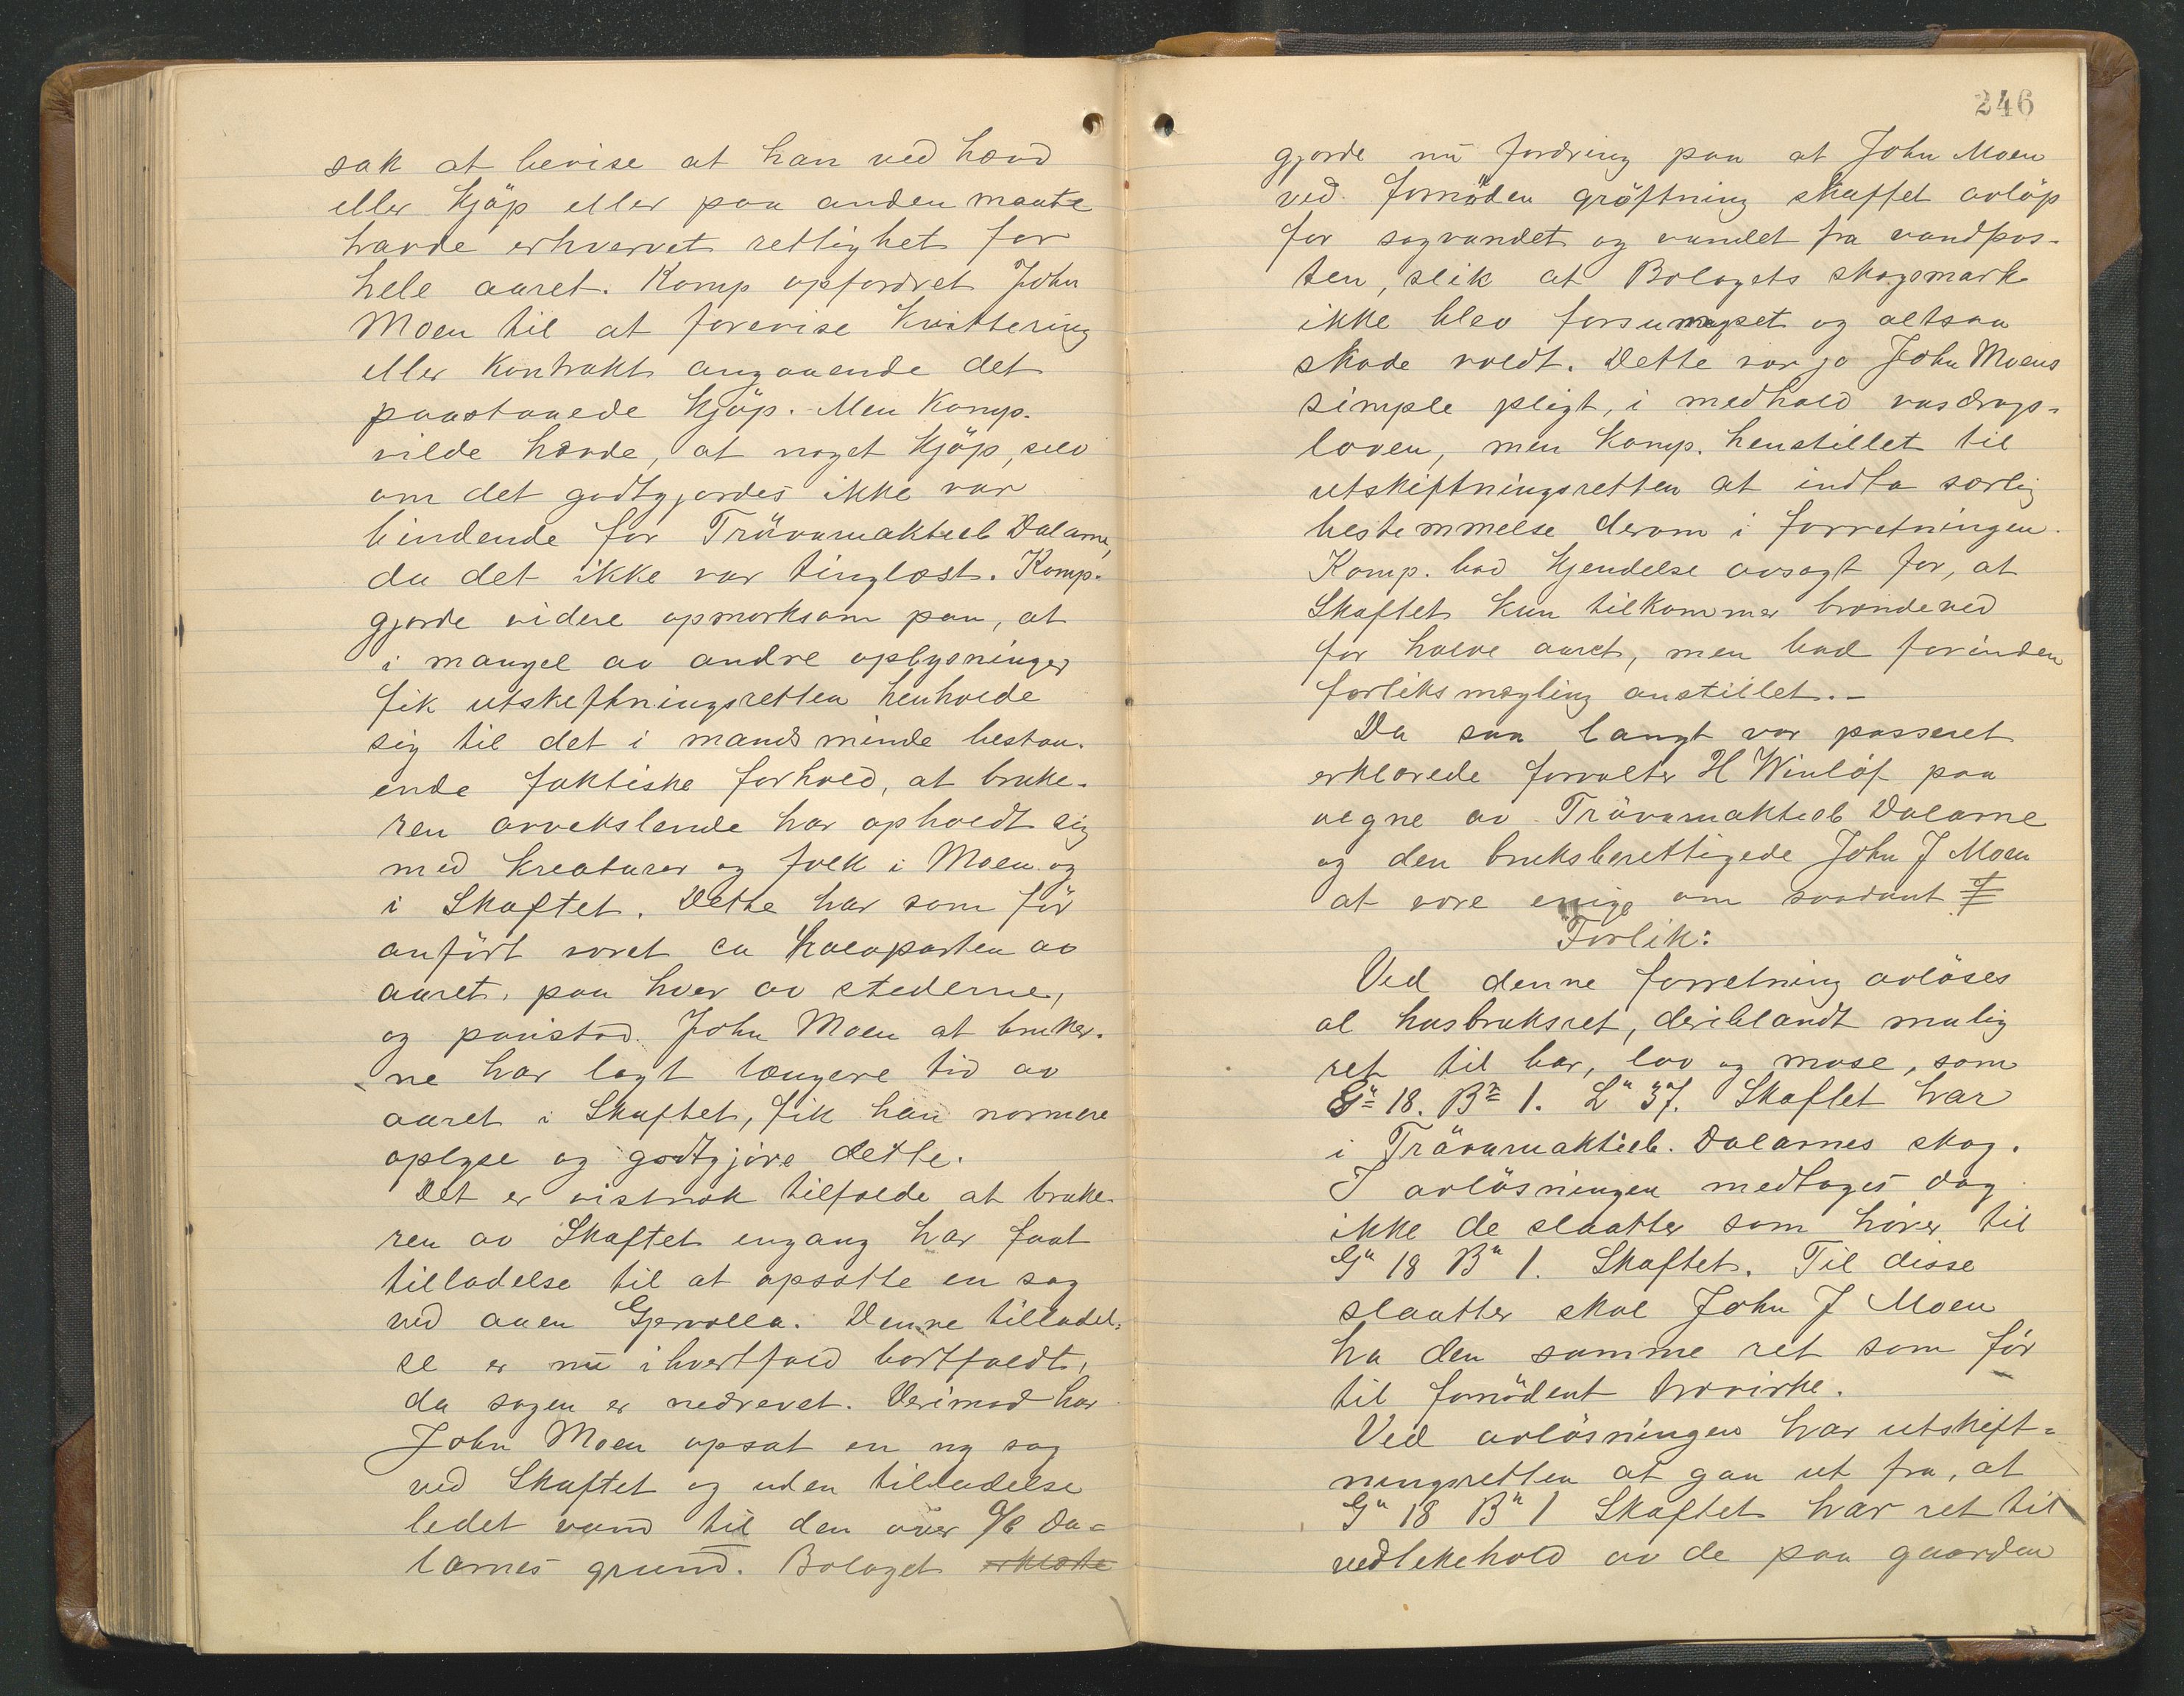 sak at bevise at han ved hævd
eller kjöp eller paa anden maate
havde erhvervet rettighet for
hele aaret. Komp opfordret John
Moen til at forevise kvittering
eller kontrakt angaaende det
paastaaede kjöp. Men Komp.
vilde hævde, at noget kjöp, selv
om det godtgjordes ikke var
bindende for Trävaruaktieb Dalarne,
da det ikke var tinglæst. Komp.
gjorde videre opmerksom paa, at
i mangel av andre oplysninger
fik utskiftningsretten henholde
sig til det i mands minde bestaa-
ende faktiske forhold, at bruke-
ren avvekslende har opholdt sig
med kreaturer og folk i Moen og
i Skaftet. Dette har som för
anfört været ca halvparten av
aaret, paa hver av stederne,
og paastod John Moen at bruker-
ne har lagt længere tid av
aaret i Skaftet, fik han nærmere
oplyse og godtgjöre dette.
Det er vistnok tilfælde at bruke-
ren av Skaftet engang har faat
tilladelse til at opsætte en sag
ved aaen Gjervolla. Denne tilladel-
se er nu ihvertfald bortfaldt,
da sagen er nedrevet. Derimod har
John Moen opsat en ny sag
ved Skaftet og uden tilladelse
ledet vand til den over A/B Da-
larnes grund. Bolaget erklærte
246
gjorde nu fordring paa at John Moen
ved fornöden gröftning skaffet avlöp
for sagvandet og vandet fra vandpos-
ten, slik at Bolagets skogsmark
ikke blev forsumpet og altsaa
skade voldt. Dette var jo John Moens
simple pligt, i medhold vasdrags-
loven, men Komp. henstillet til
utskiftningsretten at indta særlig
bestemmelse derom i forretningen.
Komp. bad kjendelse avsagt for, at
Skaftet kun tilkommer brændeved
for halve aaret, men bad forinden
forliksmægling anstillet.-
Da saa langt var passeret
erklærede forvalter H Winlöf paa
vegne av Trävaruaktieb Dalarne
og den bruksberettigede John J Moen
at være enige om saadant
Forlik:
Ved denne forretning avlöses
al husbruksret, deriblandt mulig
ret til bar, lov og mose, som
Gn 18. Bn 1. Ln 37. Skaftet har
i Trävaruaktieb. Dalarnes skog.
I avlösningen medtages dog
ikke de slaatter som hörer til
Gn 18 Bn 1. Skaftet. Til disse
slaatter skal John J Moen
ha den samme ret som för
til fornödent trævirke.
Ved avlösningen har utskift-
ningsretten at gaa ut fra, at
Gn 18 Bn 1 Skaftet har ret til
vedlikehold av de paa gaarden